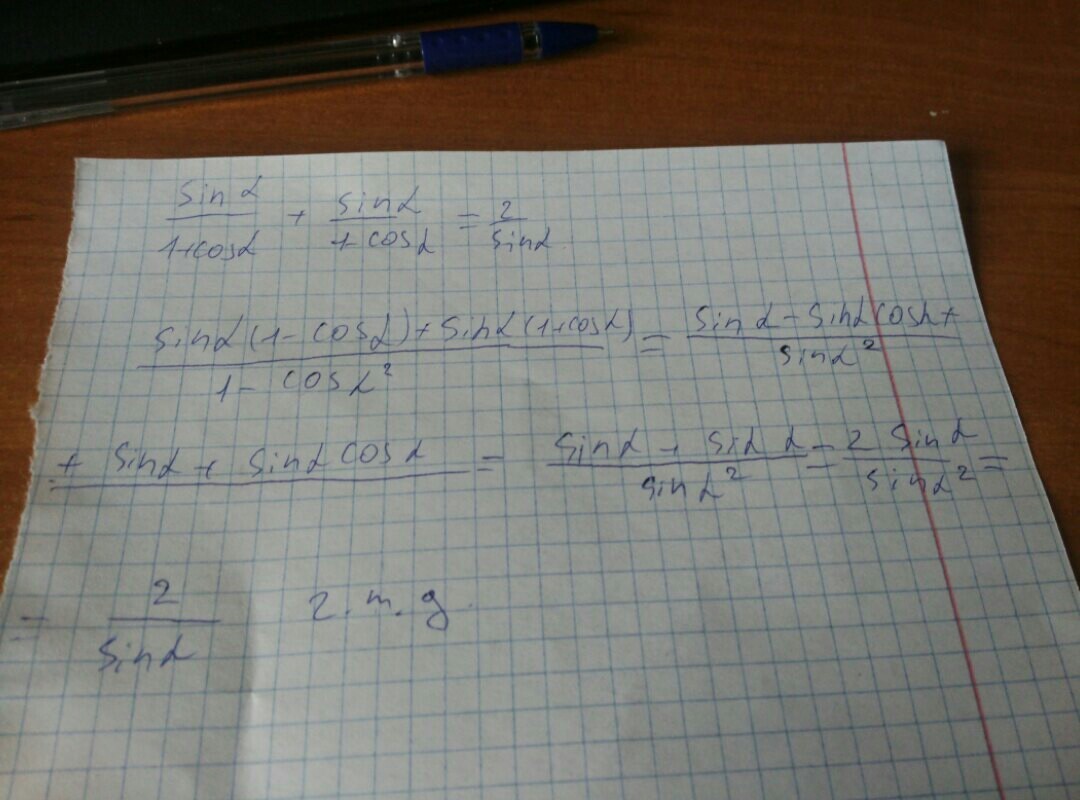 sin α / 1+cos α + sin α / + cos α = 2 / sin α
sin α (1 - cos α) + sin α (1+cos α) / 1 - cos α² = sin α - sin α cos α + / sin α²
+ sin α + sin α cos α = sin α + sin α / sin α² = 2 sin α / sin α² =
= 2 / sin α 2. m. g.